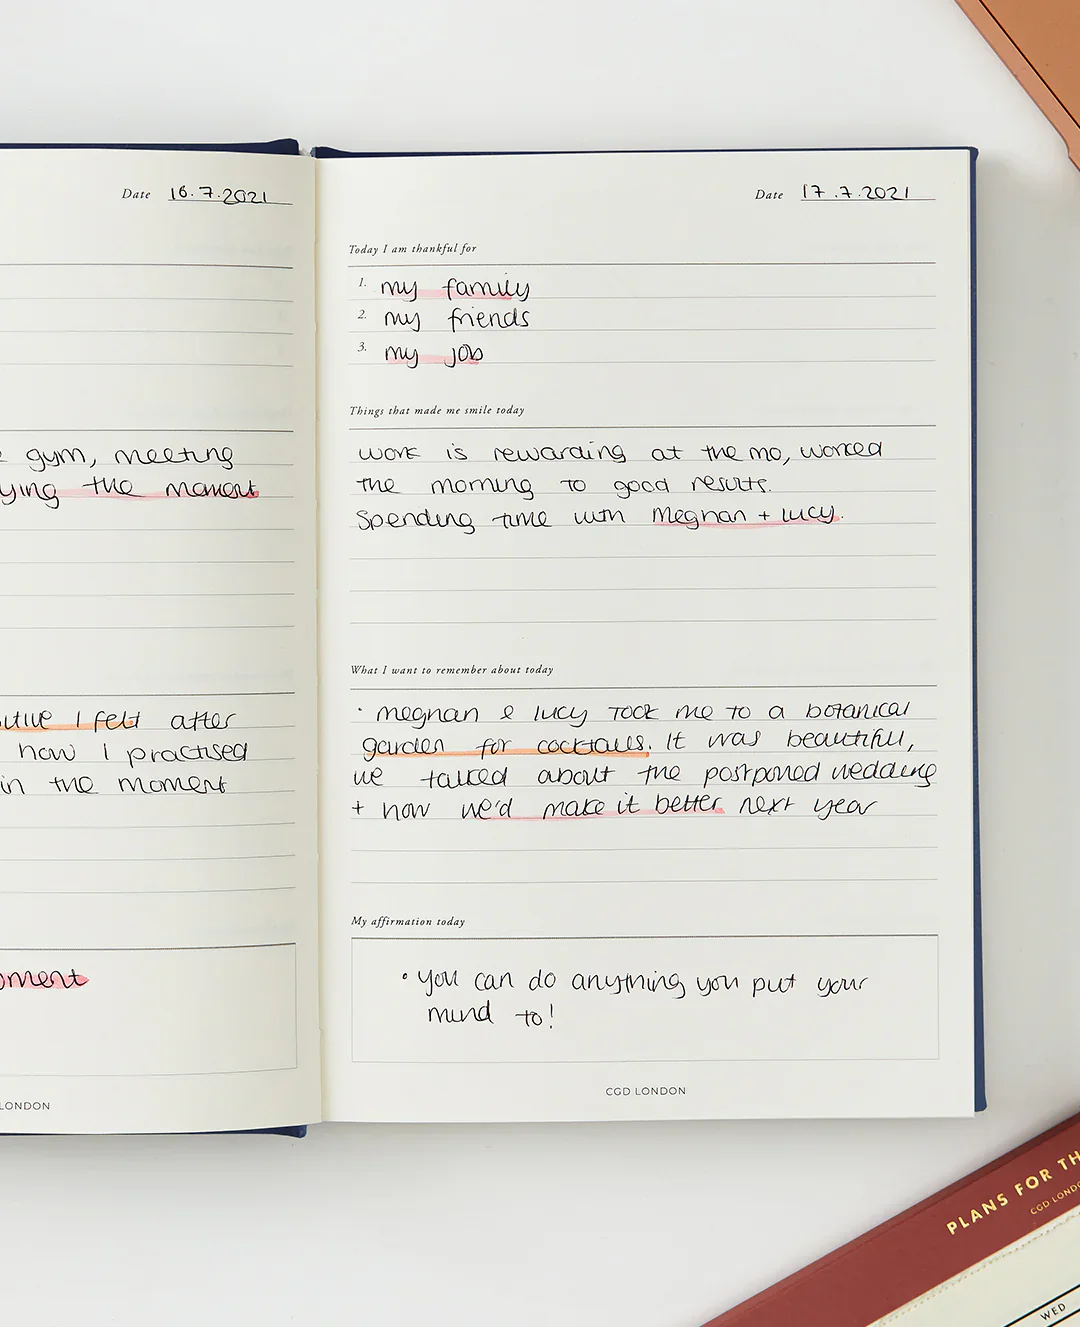 Date 16.7.2021
gym, meeting
the moment
I felt after
how I practised
in the moment
LONDON
Date 17.7.2021
Today I am thankful for
1. my family
2. my friends
3. my job
Things that made me smile today
work is rewarding at the mo, worked
the morning to good results.
Spending time with Meghan + Lucy.
What I want to remember about today
• Meghan & Lucy took me to a botanical
garden for cocktails. It was beautiful,
we talked about the postponed wedding
+ how we'd make it better next year
My affirmation today
• You can do anything you put your
mind to!
CGD LONDON
PLANS FOR
CGD
WED